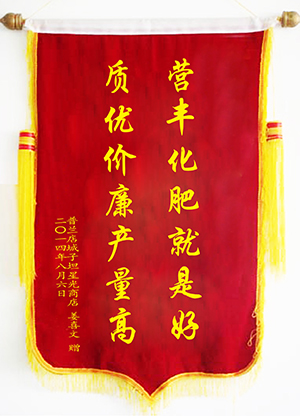 营丰化肥就是好
质优价廉产量高
普兰店城子坦星光商店 姜喜文 赠
二〇一四年八月六日